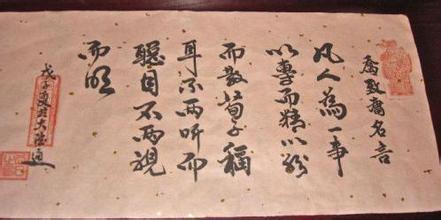 喬致庸名言
凡人為一事
以專而精以紛
而散荀子稱
耳不兩听而
聰目不兩視
而明
戊子夏於大德通